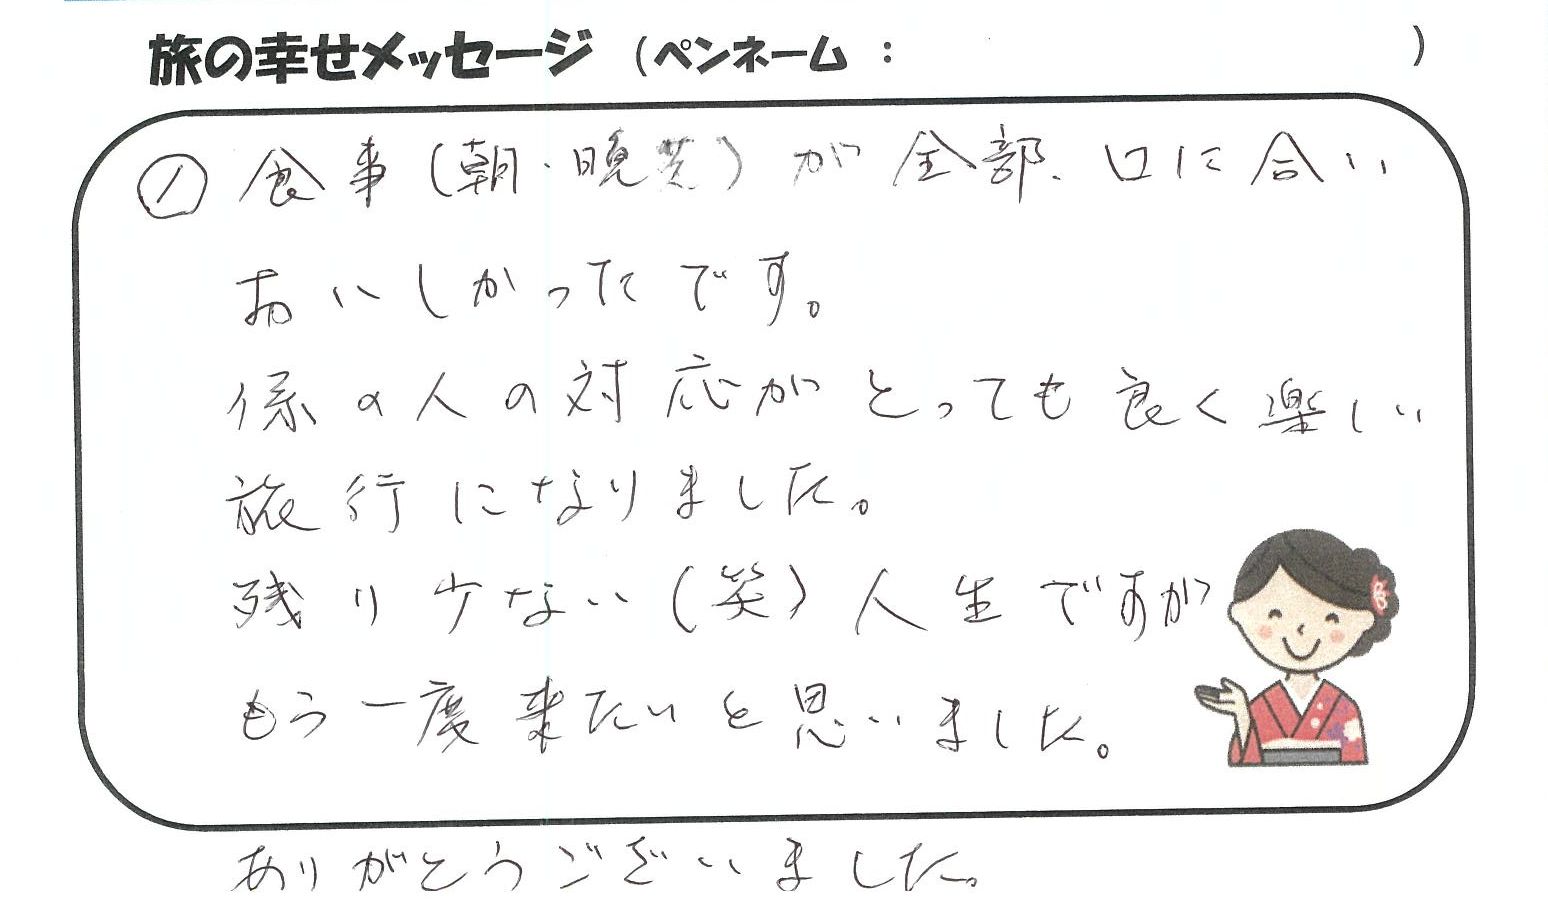 旅の幸せメッセージ（ペンネーム：　　　）
① 食事（朝・晩）が全部、口に合い
おいしかったです。
係の人の対応がとっても良く楽しい
旅行になりました。
残り少ない（笑）人生ですが
もう一度来たいと思いました。
ありがとうございました。